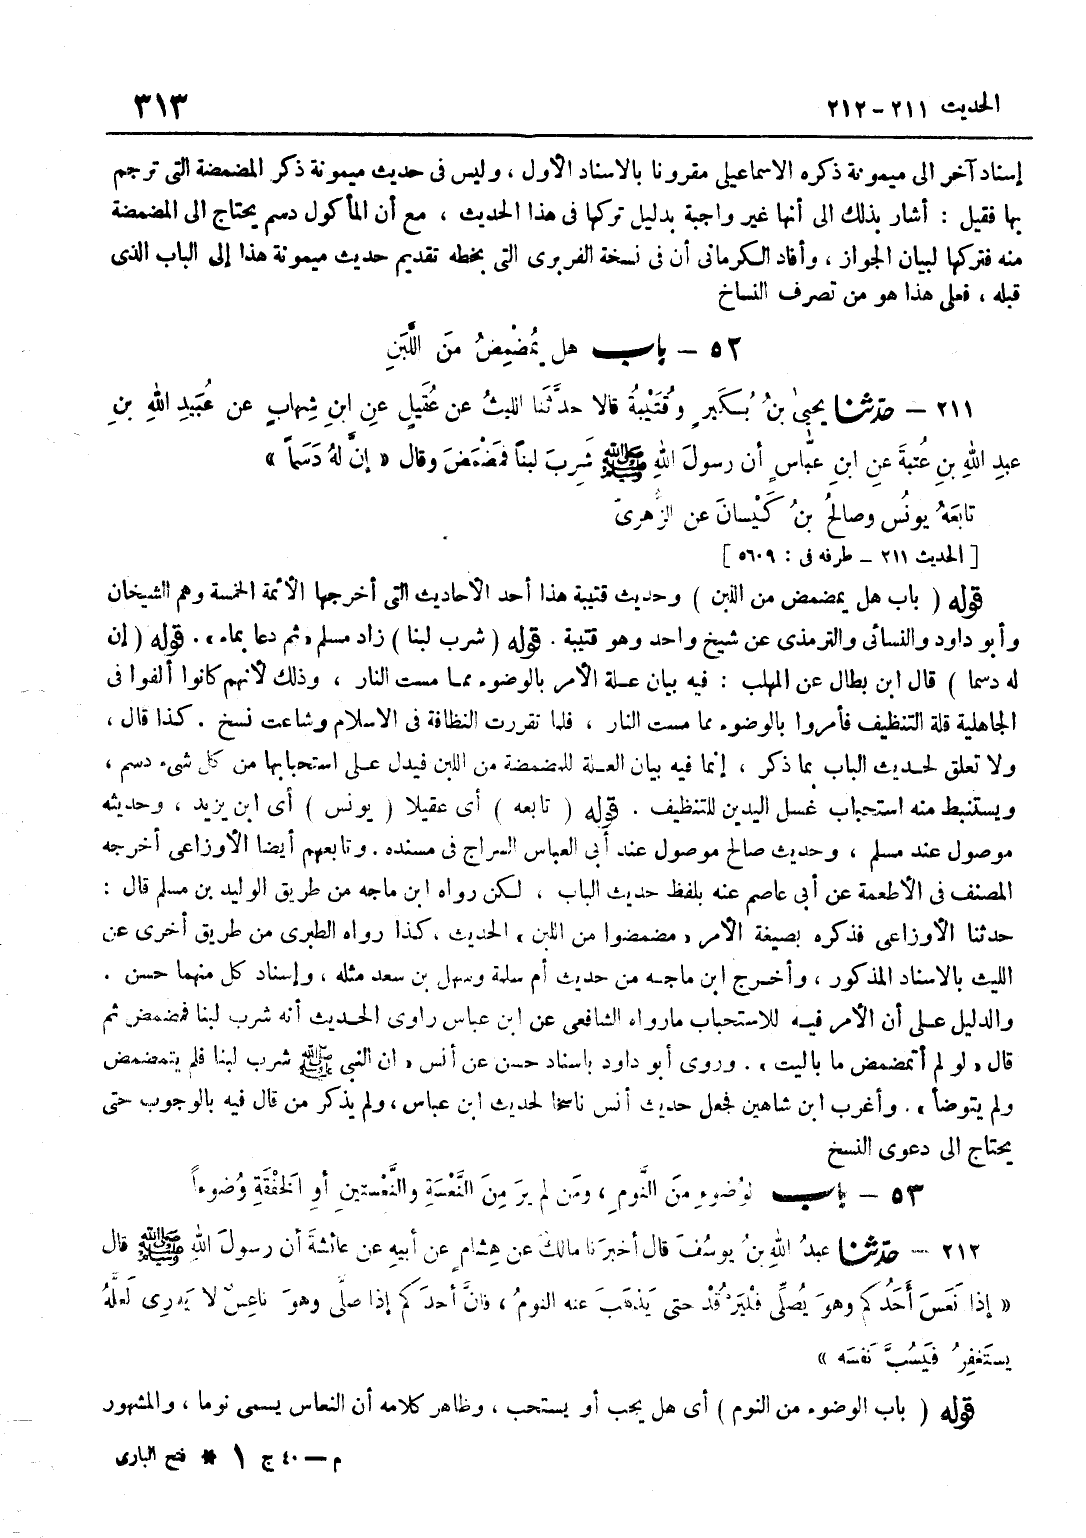 الحديث ٢١١ - ٢١٢
٣١٣
إسناد آخر الى ميمونة ذكره الاسماعيلى مقرونا بالاسناد الأول ، وليس فى حديث ميمونة ذكر المضمضة التى ترجم
بها فقيل : أشار بذلك الى أنها غير واجبة بدليل تركها فى هذا الحديث ، مع أن المأكول دسم يحتاج الى المضمضة
منه فتركها لبيان الجواز ، وأفاد الكرمانى أن فى نسخة الفربرى التى بخطه تقديم حديث ميمونة هذا إلى الباب الذى
قبله ، فعلى هذا هو من تصرف النساخ
٥٢ - باب هل يُمَضْمِضُ منَ اللَّبَنِ
٢١١ - حدثنا يحيىٰ بنُ بُكَيرٍ وقُتَيْبةُ قالا حدَّثَنا الليثُ عن عُقَيلٍ عنِ ابنِ شِهابٍ عن عُبَيدِ اللهِ بنِ
عبدِ اللهِ بنِ عُتبةَ عنِ ابنِ عبَّاسٍ أن رسولَ اللهِ ﷺ شَرِبَ لبناً فمَضْمَضَ وقال « إنَّ لهُ دَسَماً »
تابَعَهُ يونُس وصالحُ بنُ كَيْسانَ عن الزُّهرىّ
[ الحديث ٢١١ - طرفه فى : ٥٦٠٩ ]
قوله ( باب هل يمضمض من اللبن ) وحديث قتيبة هذا أحد الأحاديث التى أخرجها الأئمة الخمسة وهم الشيخان
وأبو داود والنسائى والترمذى عن شيخ واحد وهو قتيبة . قوله ( شرب لبنا ) زاد مسلم « ثم دعا بماء » . قوله ( إن
له دسما ) قال ابن بطال عن المهلب : فيه بيان علة الأمر بالوضوء مما مست النار ، وذلك لأنهم كانوا ألفوا فى
الجاهلية قلة التنظيف فأمروا بالوضوء مما مست النار ، فلما تقررت النظافة فى الاسلام وشاعت نسخ . كذا قال ،
ولا تعلق لحديث الباب بما ذكر ، إنما فيه بيان العلة للمضمضة من اللبن فيدل على استحبابها من كل شىء دسم ،
ويستنبط منه استحباب غسل اليدين للتنظيف . قوله ( تابعه ) أى عقيلا ( يونس ) أى ابن يزيد ، وحديثه
موصول عند مسلم ، وحديث صالح موصول عند أبى العباس السراج فى مسنده . وتابعهم أيضا الأوزاعى أخرجه
المصنف فى الأطعمة عن أبى عاصم عنه بلفظ حديث الباب ، لكن رواه ابن ماجه من طريق الوليد بن مسلم قال :
حدثنا الأوزاعى فذكره بصيغة الأمر « مضمضوا من اللبن » الحديث ، كذا رواه الطبرى من طريق أخرى عن
الليث بالاسناد المذكور ، وأخرج ابن ماجه من حديث أم سلمة وسهل بن سعد مثله ، وإسناد كل منهما حسن .
والدليل على أن الأمر فيه للاستحباب مارواه الشافعى عن ابن عباس راوى الحديث أنه شرب لبنا فمضمض ثم
قال « لو لم أتمضمض ما باليت » . وروى أبو داود باسناد حسن عن أنس « ان النبي ﷺ شرب لبنا فلم يتمضمض
ولم يتوضأ » . وأغرب ابن شاهين فجعل حديث أنس ناسخا لحديث ابن عباس ، ولم يذكر من قال فيه بالوجوب حتى
يحتاج الى دعوى النسخ
٥٣ - باب لوُضوءِ منَ النَّومِ ، ومَن لم يرَ مِنَ النَّعْسَةِ والنَّعْستينِ أوِ الخَفْقَةِ وُضوءاً
٢١٢ - حدثنا عبدُ اللهِ بنُ يوسُفَ قال أخبرَنا مالكٌ عن هِشامٍ عن أبيهِ عن عائشةَ أن رسولَ اللهِ ﷺ قال
« إذا نَعَسَ أَحَدُكم وهوَ يُصلِّى فلْيَرْقُدْ حتى يَذهَبَ عنه النومُ ، فانَّ أحدَكم إذا صلَّى وهوَ ناعِسٌ لا يَدرِى لَعلَّهُ
يستَغفِرُ فيَسُبَّ نَفسَه »
قوله ( باب الوضوء من النوم ) أى هل يجب أو يستحب ، وظاهر كلامه أن النعاس يسمى نوما ، والمشهور
م — ٤٠ ج ١ * فتح البارى